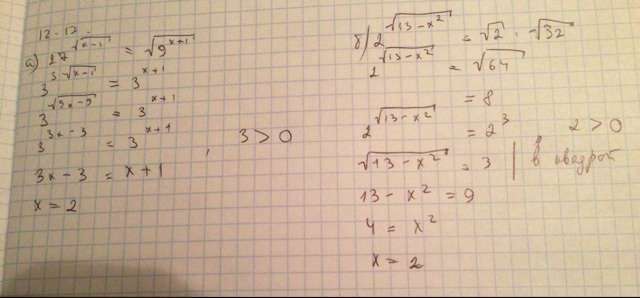 12.17.
а) 27^√(x-1) = √(9^(x+1))
3^(3·√(x-1)) = 3^(x+1)
3^√(9x-9) = 3^(x+1)
3^(3x-3) = 3^(x+1) , 3 > 0
3x - 3 = x + 1
x = 2
б) 2^√(13-x²) = √2 · √32
2^√(13-x²) = √64
= 8
2^√(13-x²) = 2³ 2 > 0
√(13-x²) = 3 | в квадрат
13 - x² = 9
4 = x²
x = 2